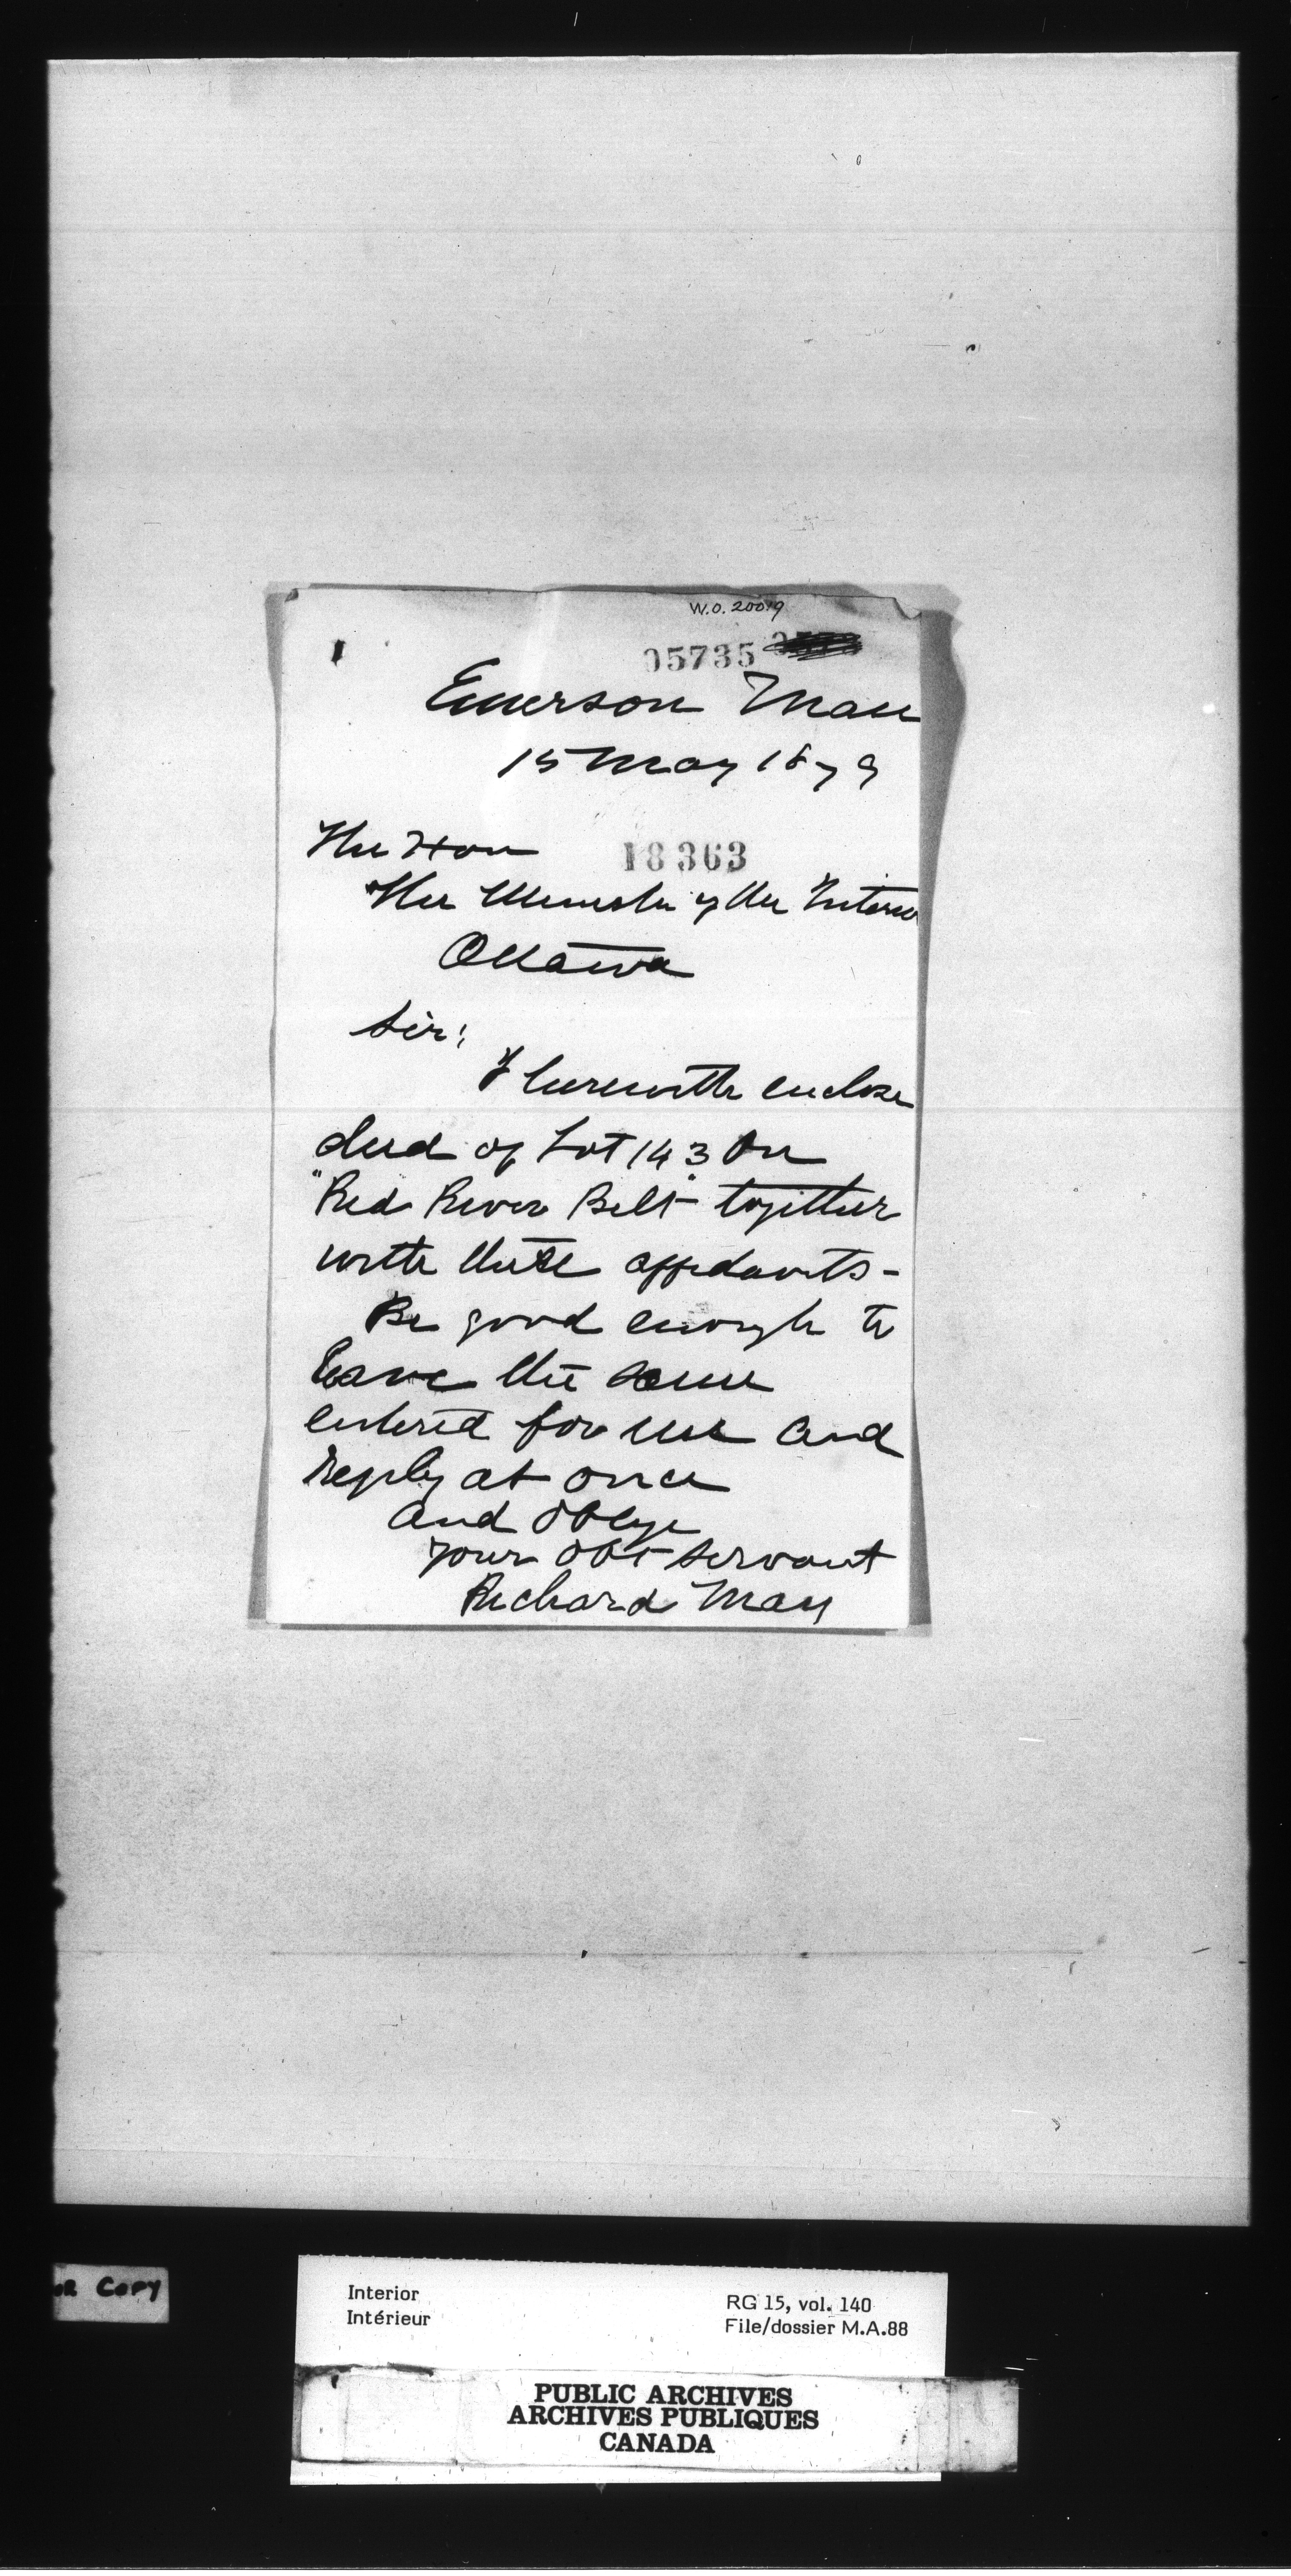 W.O. 20019
05735
Emerson Man
15 May 1879
The Hon
18363
The Minister of the Interior
Ottawa
Sir;
I herewith enclose
deed of Lot 143 on
"Red River Belt" together
with these affidavits -
Be good enough to
have the same
entered for me and
reply at once
and oblige
your obt servant
Richard May
OR COPY
Interior
Intérieur
RG 15, vol. 140
File/dossier M.A.88
PUBLIC ARCHIVES
ARCHIVES PUBLIQUES
CANADA